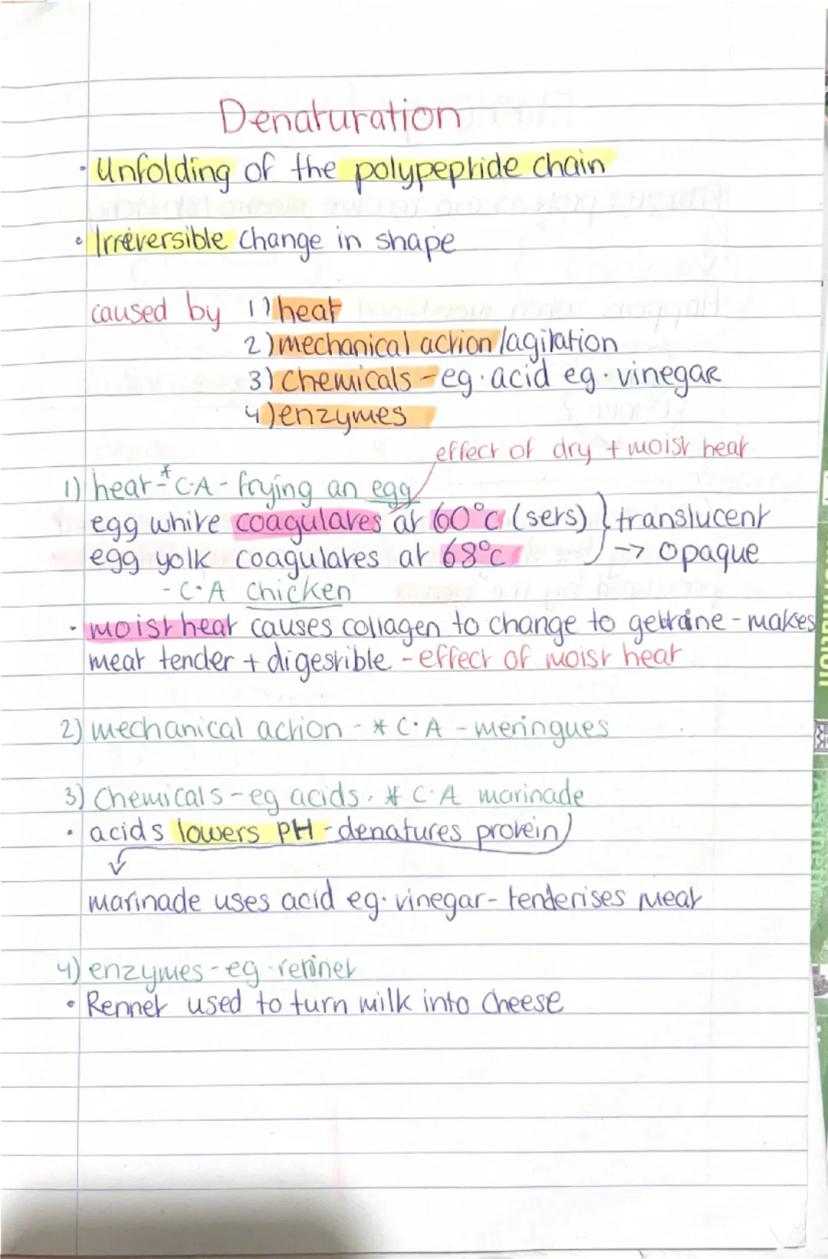 Denaturation
• Unfolding of the polypeptide chain
• Irreversible change in shape
caused by 1) heat
2) mechanical action/agitation
3) chemicals - eg. acid eg. vinegar
4) enzymes
effect of dry + moist heat
1) heat - * C.A - frying an egg
egg white coagulates at 60°c (sets) } translucent
egg yolk coagulates at 68°c → opaque
- C.A chicken
• moist heat causes collagen to change to - makes
meat tender + digestible - effect of moist heat
2) mechanical action - * C.A - meringues
3) Chemicals - eg acids. * C.A marinade
• acids lowers PH - denatures protein
marinade uses acid eg. vinegar - tenderises meat
4) enzymes - eg. rennet
• Rennet used to turn milk into cheese